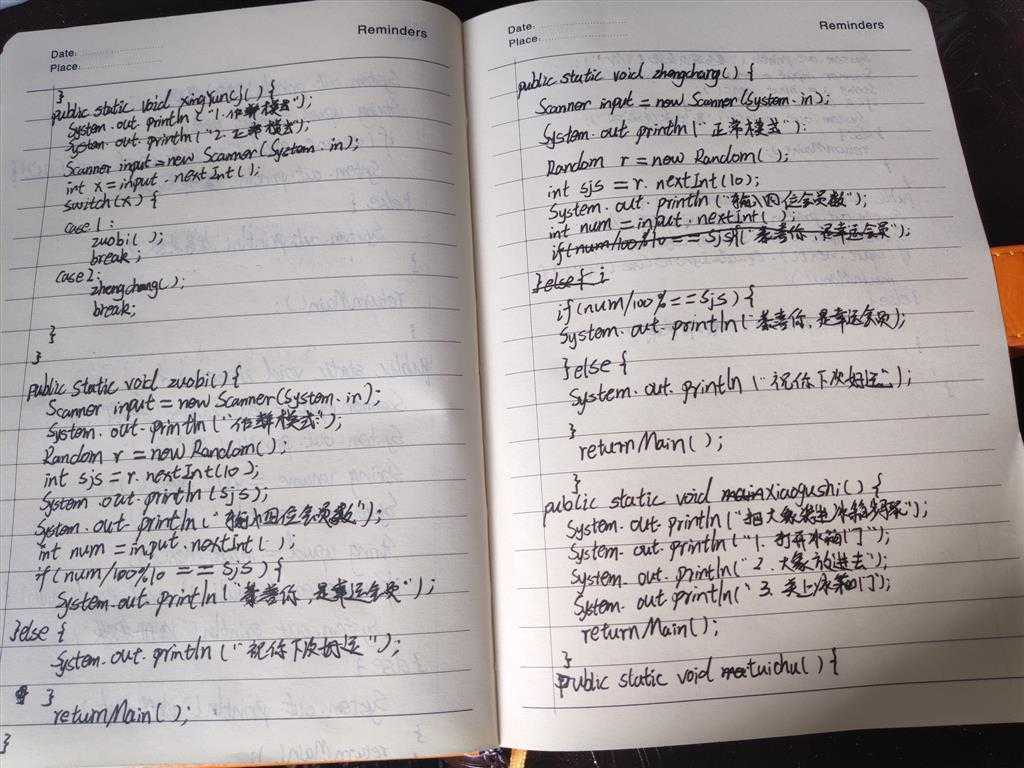 Reminders
Date:
Place:
}
public static void xingYun(){
System.out.println("1.作弊模式");
System.out.println("2.正常模式");
Scanner input=new Scanner(System.in);
int x=input.nextInt();
switch(x){
case 1:
zuobi();
break;
case 2:
zhengchang();
break;
}
}
public static void zuobi(){
Scanner input=new Scanner(System.in);
System.out.println("作弊模式");
Random r=new Random();
int sjs=r.nextInt(10);
System.out.println(sjs);
System.out.println("输入四位会员数");
int num=input.nextInt();
if(num/100%10==sjs){
System.out.println("恭喜你,是幸运会员");
}else{
System.out.println("祝你下次好运");
}
returnMain();
}
Reminders
Date:
Place:
public static void zhengchang(){
Scanner input=new Scanner(System.in);
System.out.println("正常模式");
Random r=new Random();
int sjs=r.nextInt(10);
System.out.println("输入四位会员数");
int num=input.nextInt();
if(num/100%10==sjs)("恭喜你,是幸运会员");
}else{
if(num/100%==sjs){
System.out.println("恭喜你,是幸运会员);
}else{
System.out.println("祝你下次好运");
}
returnMain();
}
public static void xiaogushi(){
System.out.println("把大象装进冰箱");
System.out.println("1.打开冰箱门");
System.out.println("2.大象放进去");
System.out.println("3.关上冰箱门");
returnMain();
}
public static void tuichu(){